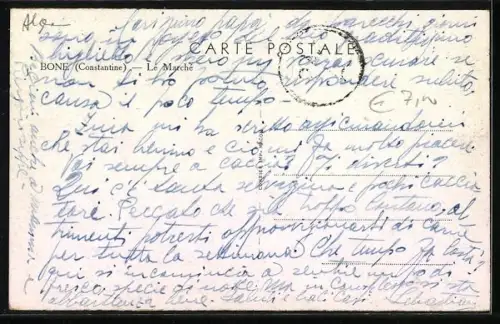 Alg.
Carissimo papà, da parecchi giorni
sono in possesso del tuo graditissimo
CARTE POSTALE
biglietto
BONE (Constantine) — Le Marché
non ti ho potuto rispondere subito
causa il poco tempo —
7,50
mi ha scritto assicurandomi
che stai benino e ciò mi fa molto piacere
Vai sempre a caccia? Ti diverti?
Qui c'è tanta selvaggina e pochi caccia
tori. Peccato che sia troppo lontano, al
trimenti potresti approvvigionarti di carne
per tutta la settimana. Che tempo fa costà?
qui si incomincia a sentire un po' di
fresco specie di notte ma in complesso si sta
abbastanza bene. Saluti e baci cari